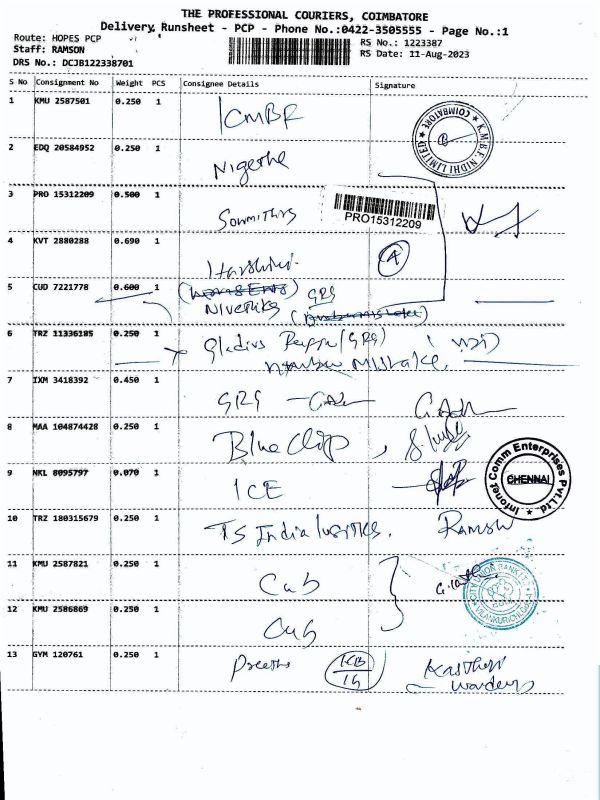 THE PROFESSIONAL COURIERS, COIMBATORE
Delivery, Runsheet - PCP - Phone No.:0422-3505555 - Page No.:1
Route: HOPES PCP
RS No.: 1223387
Staff: RAMSON
RS Date: 11-Aug-2023
DRS No.: DCJB122338701
S No Consignment No Weight PCS Consignee Details Signature
1 KMU 2587501 0.250 1 ICMBR
K.M.B.F. NIDHI LIMITED COIMBATORE
2 EDQ 20584952 0.250 1
3 PRO 15312209 0.500 1 Sowmithrs
PRO15312209
4 KVT 2880288 0.690 1 Harshini. A
5 CUD 7221778 0.600 1
GRG
6 TRZ 11336185 0.250 1 (GRG)
mistake,
7 IXM 3418392 0.450 1 GRG
8 MAA 104874428 0.250 1 Blue Chip,
9 NKL 8095797 0.070 1 ICE
Infonet Comm Enterprises Pvt.Ltd. CHENNAI
10 TRZ 180315679 0.250 1 TS India Logistics. Ramson
11 KMU 2587821 0.250 1 Cub
12 KMU 2586869 0.250 1 Cub
13 GYM 120761 0.250 1 Preetha Kasthuri
warden